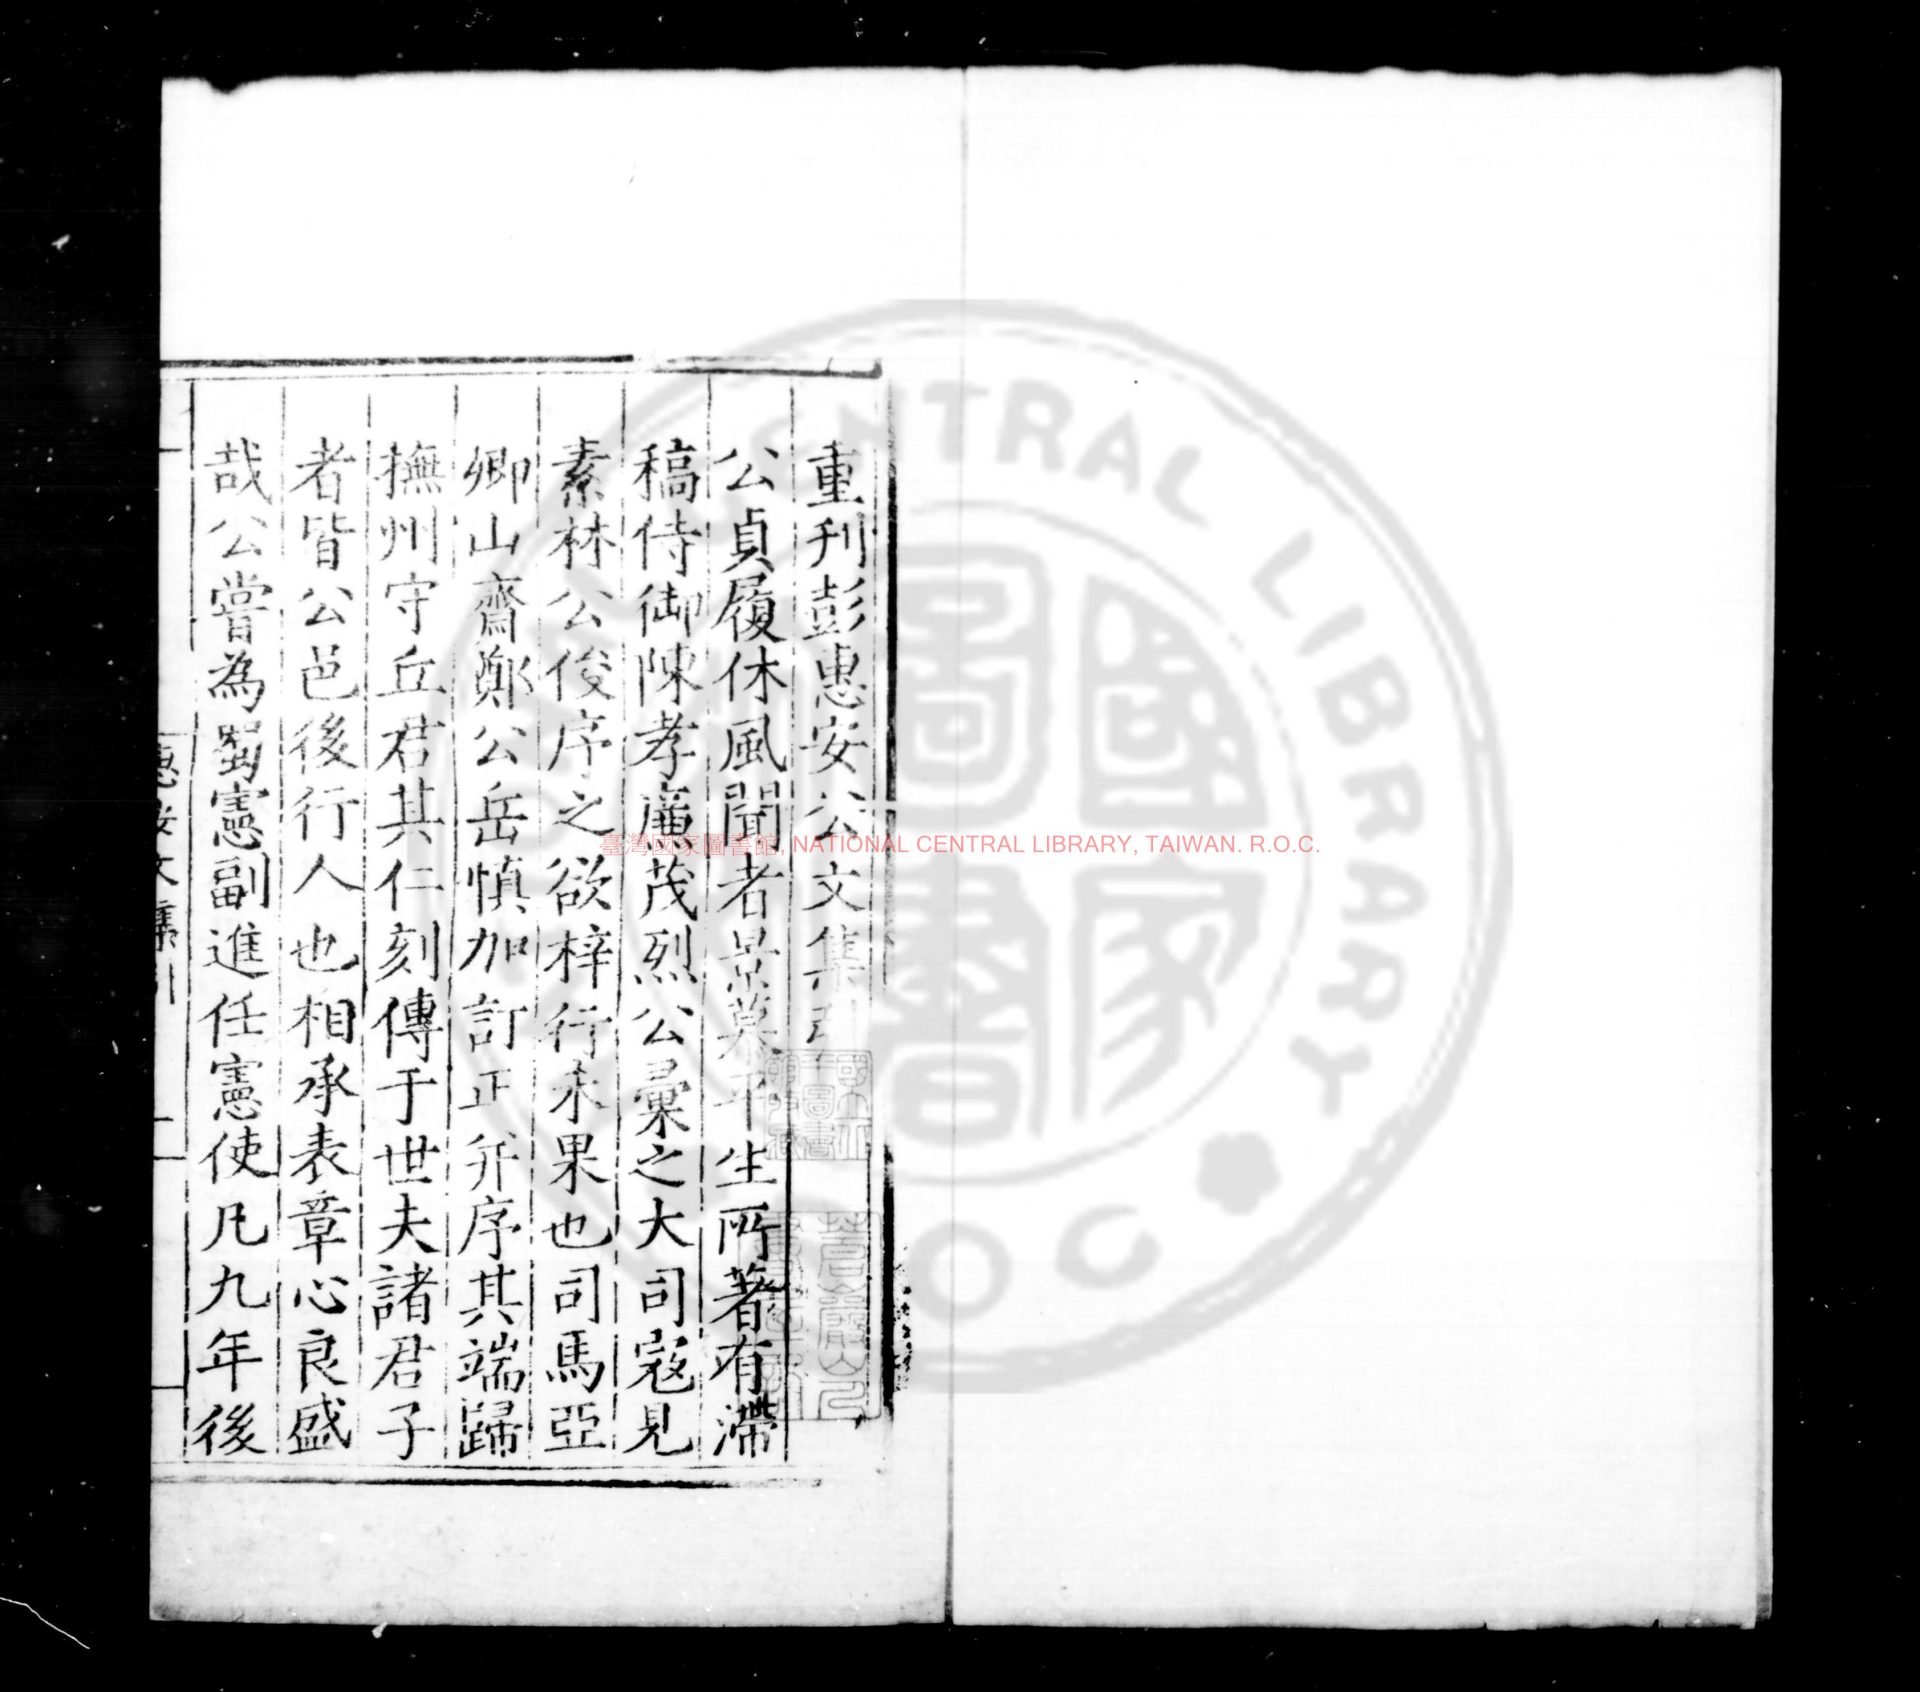 重刋彭惠安公文集引
公貞履休風聞者景慕平生所著有滯
稿侍御陳孝廉茂烈公彙之大司寇見
素林公俊序之欲梓行未果也司馬亞
卿山齋鄭公岳慎加訂正并序其端歸
撫州守丘君其仁刻傳于世夫諸君子
者皆公邑後行人也相承表章心良盛
哉公嘗為蜀憲副進任憲使凡九年後
惠安文集引
臺灣國家圖書館, NATIONAL CENTRAL LIBRARY, TAIWAN. R.O.C.
CENTRAL LIBRARY
國家圖書